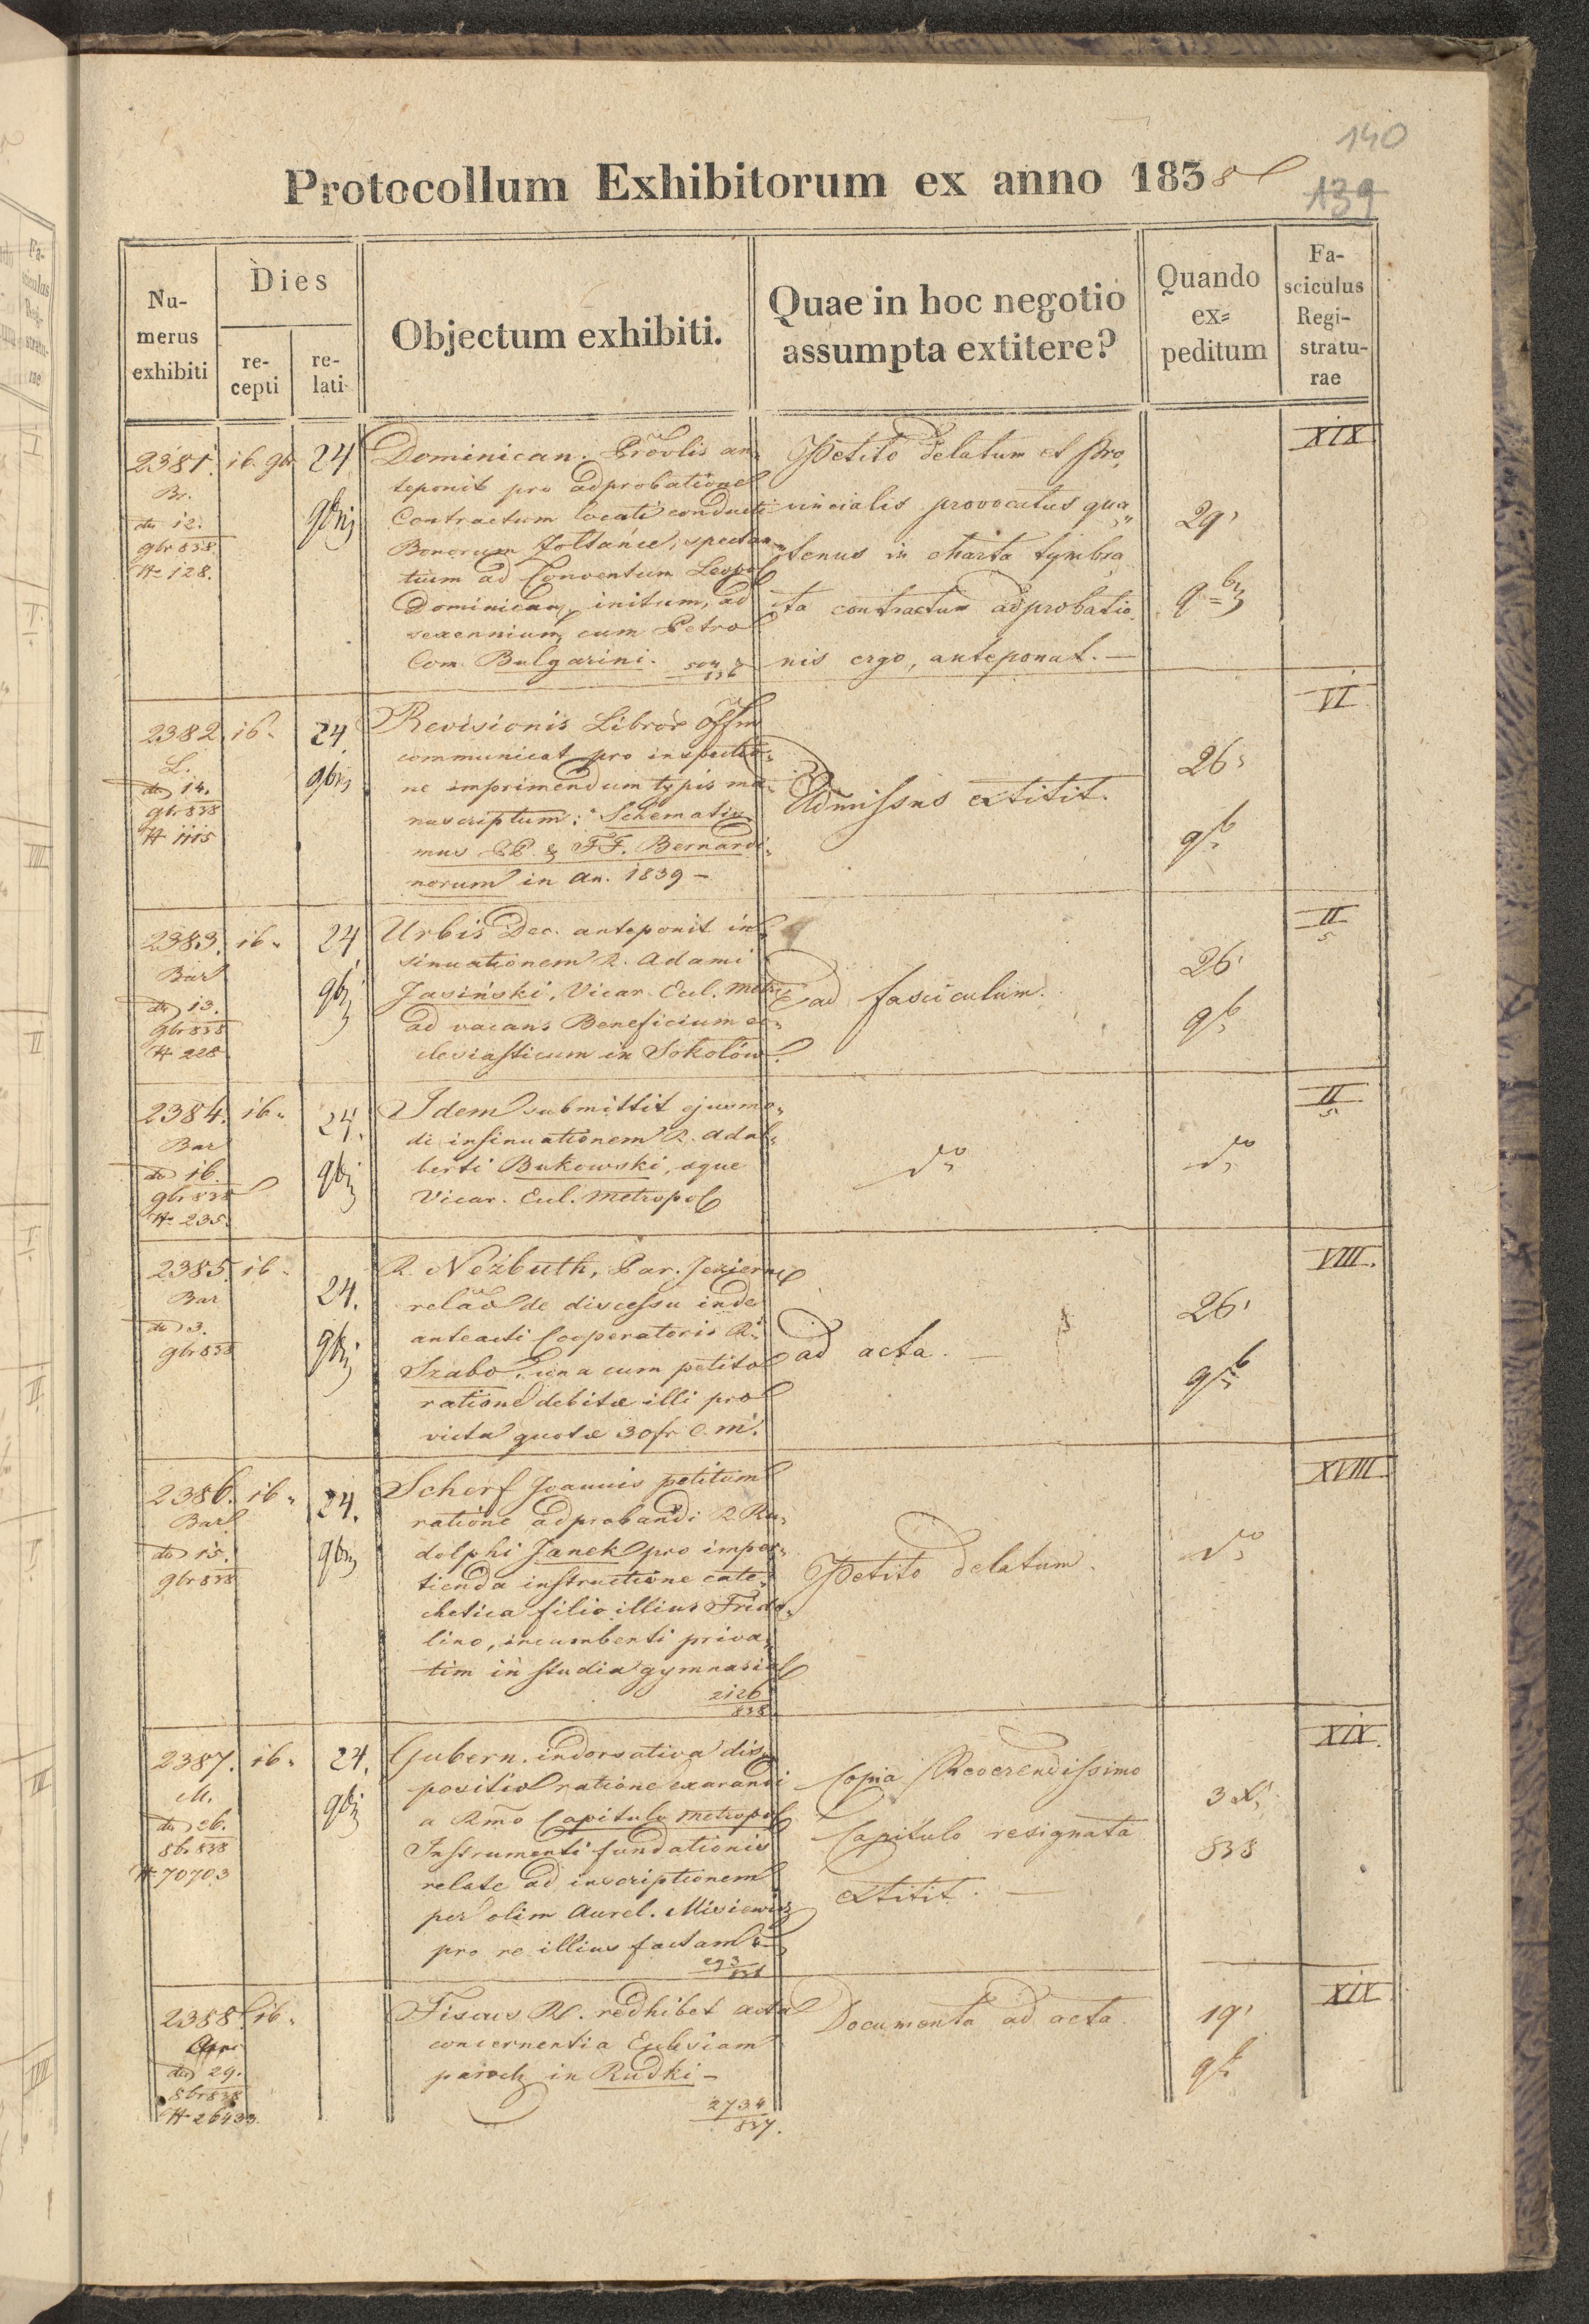 140
Protocollum Exhibitorum ex anno 1838
139
Nu-
merus
exhibiti
Dies
re-
cepti
re-
lati
Objectum exhibiti.
Quae in hoc negotio
assumpta extitere?
Quando
ex-
peditum
Fa-
sciculus
Regi-
stratu-
rae
2381. 16. 9br
Br.
dto 12.
9br 838
N 128.
24
9bris
Dominican. Provlis an-
teponit pro adprobatione
Contractum locati conducti
Bonorum Zoltańce, spectan-
tium ad Conventum Leopol
Dominican, initum, ad
sexennium cum Petro
Com. Bulgarini.
Petito delatum et Pro,
vincialis provocatus qua,,
tenus in charta tymbra
ta contractum adprobatio
nis ergo, anteponat. —
29
9bris
XIX
2382. 16.
L.
dto 14.
9br 838
N 1115
24.
9bris
Revisionis Libror Offm
communicat pro inspectio-
ne imprimendum typis ma-
nuscriptum: Schematis-
mus PP. & FF. Bernardi-
norum in an. 1839 —
Admissus extitit.
26
9b
VI
2383. 16.
Bar
dto 13.
9br 838
N 228
24
9bris
Urbis Dec. anteponit in-
sinuationem R. Adami
Jasiński, Vicar. Eccl. Metr
ad vacans Beneficium ec-
clesiasticum in Sokołów.
ad fasciculum.
26
9b
II
5
2384. 16.
Bar
dto 16.
9br 838
N 235.
24.
9bris
Idem submittit ejusmo-
di insinuationem R. Adal-
berti Bukowski, aque
Vicar. Eccl. Metropol
do
do
II
5
2385. 16.
Bar
dto 3.
9br 838
24.
9bris
R. Nezbuth, Par. Jezierne
relao de discessu inde
anteacti Cooperatoris R.
Szabo, una cum petito
ratione debitæ illi pro
victu quotæ 30 fr C.M.
ad acta. —
26
9b
VIII.
2386. 16.
Bar
dto 15.
9br 838
24.
9bris
Scherf Joannis petitum
ratione adprobandi R Ru-
dolphi Janek pro imper-
tienda instructione cate-
chetica filio illius Frido-
lino, incumbenti priva-
tim in studia gymnasial
2126
838
Petito delatum.
do
XVIII.
2387. 16.
M.
dto 26.
8br 838
N 70703
24.
9bris
Gubern. indorsativa dis-
positio ratione exarandi
a Rmo Capitulo Metropol
Instrumenti fundationis
relate ad inscriptionem
per olim Aurel. Misiewicz
pro re illius factam
Copia Reverendissimo
Capitulo resignata
extitit. —
3 X
838
XIX.
2388. 16.
dto 29.
8br 838
N 26433.
Fiscus R. redhibet acta
concernentia Ecclesiam
paroch in Rudki —
2734
837.
Documenta ad acta.
19
9b
XIX